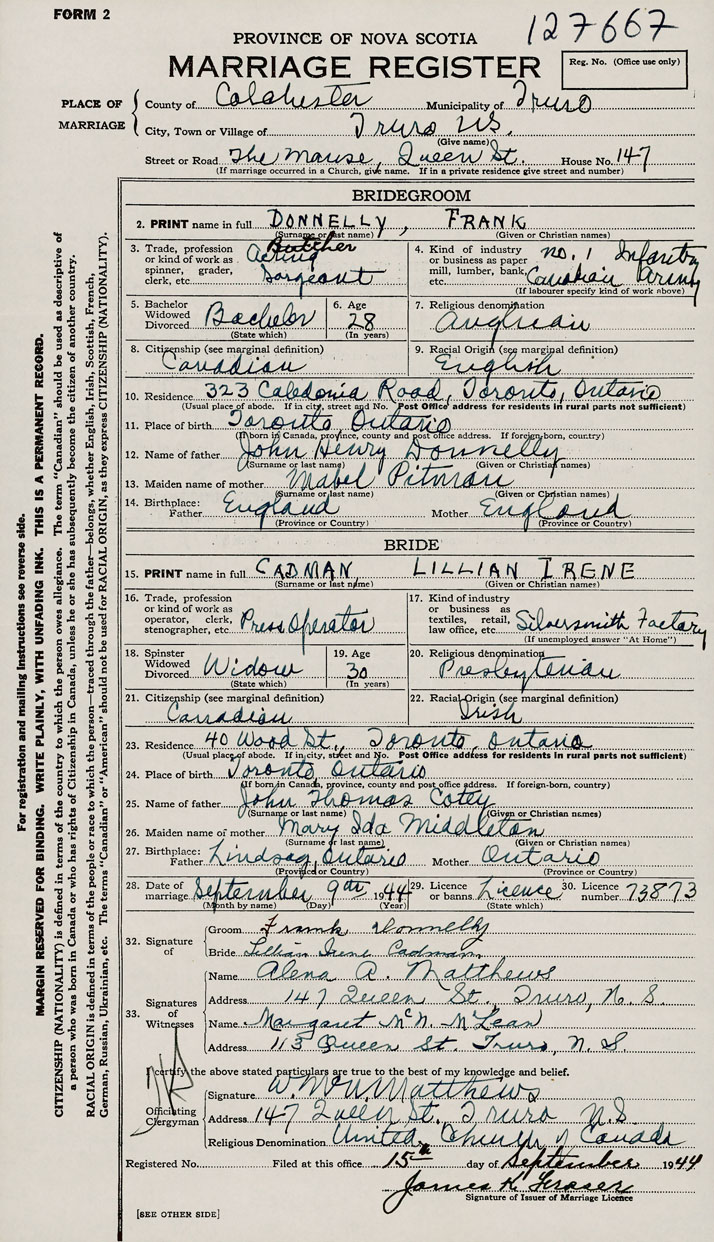 FORM 2
127667
PROVINCE OF NOVA SCOTIA
MARRIAGE REGISTER
Reg. No. (Office use only)
PLACE OF MARRIAGE
County of Colchester Municipality of Truro
City, Town or Village of Truro NS.
(Give name)
Street or Road The Manse, Queen St. House No. 147
(If marriage occurred in a Church, give name. If in a private residence give street and number)
BRIDEGROOM
2. PRINT name in full DONNELLY, FRANK
(Surname or last name) (Given or Christian names)
3. Trade, profession or kind of work as spinner, grader, clerk, etc. Butcher Acting Sargeant
4. Kind of industry or business as paper mill, lumber, bank, etc. No. 1 Infantry Canadian Army
(If labourer specify kind of work above)
5. Bachelor Widowed Divorced Bachelor
(State which)
6. Age 28
(In years)
7. Religious denomination Anglican
8. Citizenship (see marginal definition) Canadian
9. Racial Origin (see marginal definition) English
10. Residence 323 Caledonia Road, Toronto, Ontario
(Usual place of abode. If in city, street and No. Post Office address for residents in rural parts not sufficient)
11. Place of birth Toronto, Ontario
(If born in Canada, province, county and post office address. If foreign-born, country)
12. Name of father John Henry Donnelly
(Surname or last name) (Given or Christian names)
13. Maiden name of mother Mabel Pitman
(Surname or last name) (Given or Christian names)
14. Birthplace: Father England Mother England
(Province or Country) (Province or Country)
BRIDE
15. PRINT name in full CADMAN, LILLIAN IRENE
(Surname or last name) (Given or Christian names)
16. Trade, profession or kind of work as operator, clerk, stenographer, etc. Press Operator
17. Kind of industry or business as textiles, retail, law office, etc. Silversmith Factory
(If unemployed answer "At Home")
18. Spinster Widowed Divorced Widow
(State which)
19. Age 30
(In years)
20. Religious denomination Presbyterian
21. Citizenship (see marginal definition) Canadian
22. Racial Origin (see marginal definition) Irish
23. Residence 40 Wood St., Toronto, Ontario
(Usual place of abode. If in city, street and No. Post Office address for residents in rural parts not sufficient)
24. Place of birth Toronto, Ontario
(If born in Canada, province, county and post office address. If foreign-born, country)
25. Name of father John Thomas Cotey
(Surname or last name) (Given or Christian names)
26. Maiden name of mother Mary Ida Middleton
(Surname or last name) (Given or Christian names)
27. Birthplace: Father Lindsay, Ontario Mother Ontario
(Province or Country) (Province or Country)
28. Date of marriage September 9th 1944
(Month by name) (Day) (Year)
29. Licence or banns Licence
(State which)
30. Licence number 73873
32. Signature of
Groom Frank Donnelly
Bride Lillian Irene Cadman
33. Signatures of Witnesses
Name Alena A. Matthews
Address 147 Queen St., Truro, N.S.
Name Margaret McN. McLean
Address 113 Queen St. Truro, N.S.
I certify the above stated particulars are true to the best of my knowledge and belief.
Officiating Clergyman
Signature W. McN. Matthews
Address 147 Queen St., Truro N.S.
Religious Denomination United Church of Canada
Registered No. Filed at this office 15th day of September 1944
James K. Fraser
Signature of Issuer of Marriage Licence
[SEE OTHER SIDE]
For registration and mailing instructions see reverse side.
MARGIN RESERVED FOR BINDING. WRITE PLAINLY, WITH UNFADING INK. THIS IS A PERMANENT RECORD.
CITIZENSHIP (NATIONALITY) is defined in terms of the country to which the person owes allegiance. The term "Canadian" should be used as descriptive of
a person who was born in Canada or who has rights of Citizenship in Canada, unless he or she has subsequently become the citizen of another country.
RACIAL ORIGIN is defined in terms of the people or race to which the person—traced through the father—belongs, whether English, Irish, Scottish, French,
German, Russian, Ukrainian, etc. The terms "Canadian" or "American" should not be used for RACIAL ORIGIN, as they express CITIZENSHIP (NATIONALITY).